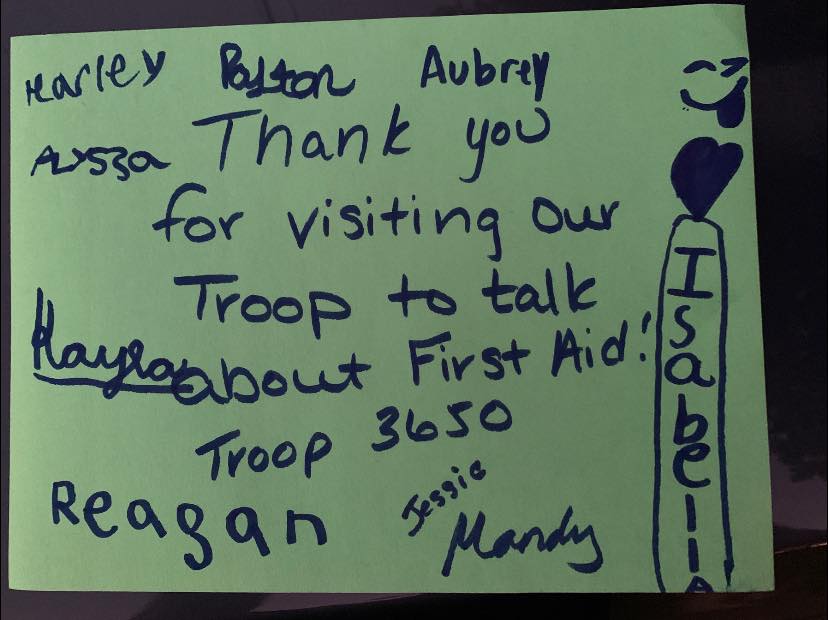 Harley Payton Aubrey
Alyssa
Thank you
for visiting our
Troop to talk
Kayla
about First Aid!
Troop 3650
Reagan
Jessie
Mandy
Isabella